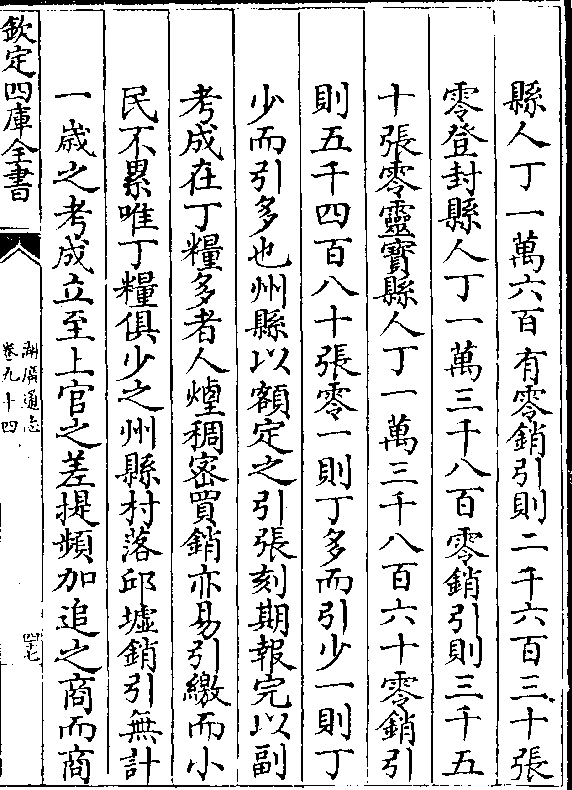 縣人丁一萬六百有零銷引則二千六百三十張
零登封縣人丁一萬三千八百零銷引則三千五
十張零靈寳縣人丁一萬三千八百六十零銷引
則五千四百八十張零一則丁多而引少一則丁
少而引多也州縣以額定之引張刻期報完以副
考成在丁糧多者人煙稠密買銷亦易引繳而小
民不累唯丁糧俱少之州縣村落邱墟銷引無計
一歳之考成立至上官之差提頻加追之商而商
欽定四庫全書
湖廣通志
卷九十四
四七